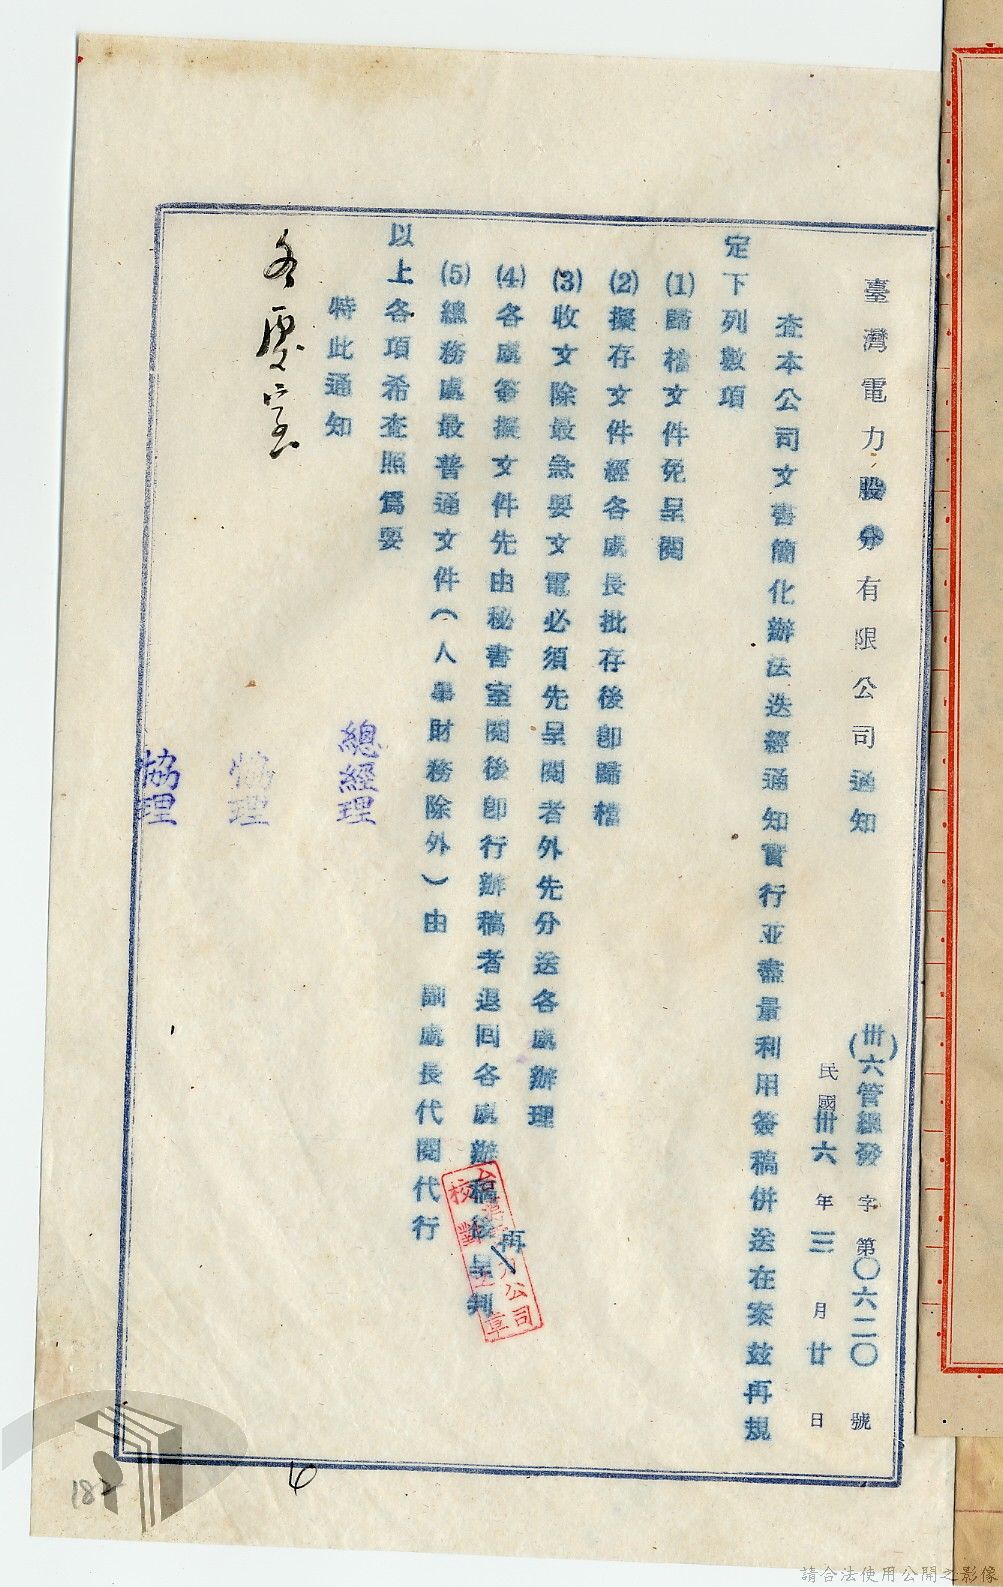 臺灣電力股份有限公司通知
(卅六)管總發字第〇六二〇號
民國卅六年三月廿日
查本公司文書簡化辦法迭經通知實行並盡量利用簽稿併送在案茲再規
定下列數項
(1)歸檔文件免呈閱
(2)擬存文件經各處長批存後卽歸檔
(3)收文除最急要文電必須先呈閱者外先分送各處辦理
(4)各處簽擬文件先由秘書室閱後卽行辦稿者退回各處辦稿後再呈判
(5)總務處最普通文件(人事財務除外)由 副處長代閱代行
以上各項希查照爲要
特此通知
各處室
總經理
協理
協理
校對
182
請合法使用公開之影像